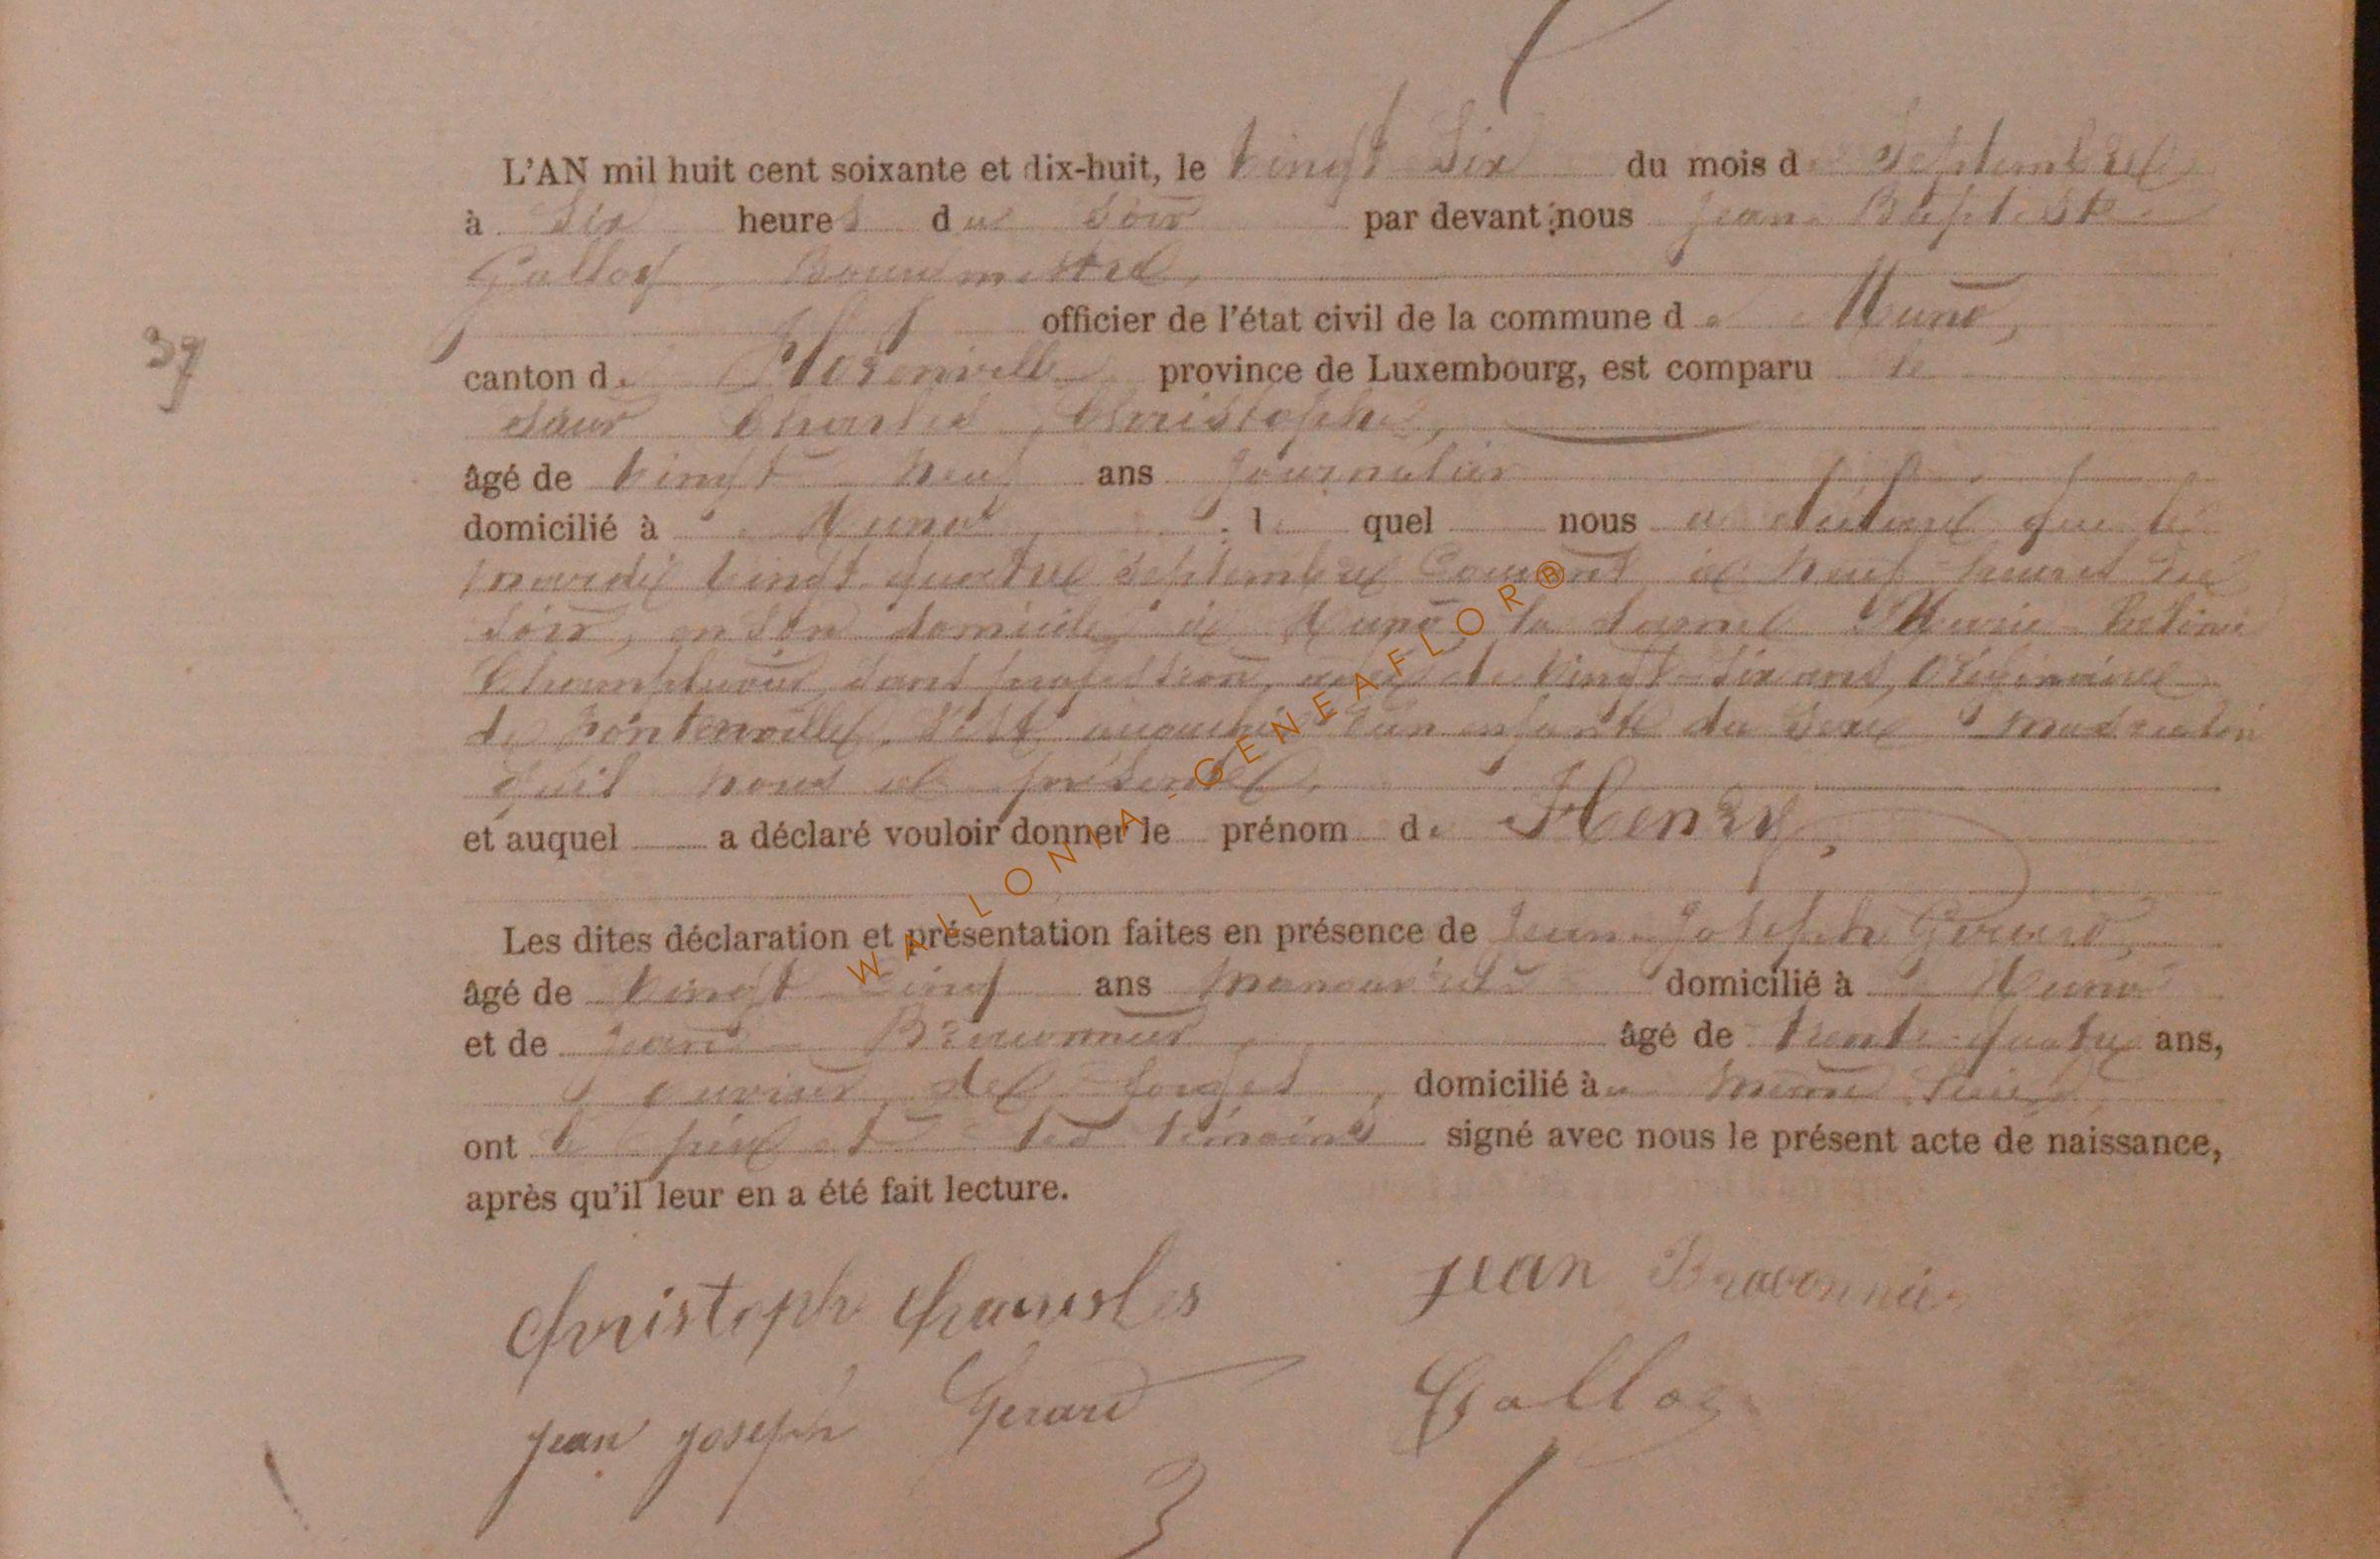 L'AN mil huit cent soixante et dix-huit, le vingt Six du mois de Septembre
à Six heures du Soir par devant nous Jean Baptiste
Galloy, Bourgmestre,
officier de l'état civil de la commune de Muno,
37
canton de Florenville province de Luxembourg, est comparu le
sieur Charles Christophe,
âgé de vingt neuf ans journalier
domicilié à Muno, lequel nous a déclaré que le
mardi vingt quatre Septembre Courant à neuf heures du
Soir, en Son domicile à Muno, la dame Marie
sans profession, agée de vingt-six ans, Originaire
de Fontenoille, s'est accouchée d'un enfant du sexe masculin
qu'il nous a présenté,
et auquel a déclaré vouloir donner le prénom de Henry,
Les dites déclaration et présentation faites en présence de Jean Joseph Gerard,
âgé de vingt cinq ans manoeuvre domicilié à Muno
et de Jean Braconnier, âgé de trente quatre ans,
ouvrier de forges, domicilié à même lieu,
ont le père et les témoins signé avec nous le présent acte de naissance,
après qu'il leur en a été fait lecture.
Christoph Chaursles Jean Braconnier
Jean Joseph Gerard Galloy
WALLONIA-GENEAFLOR®